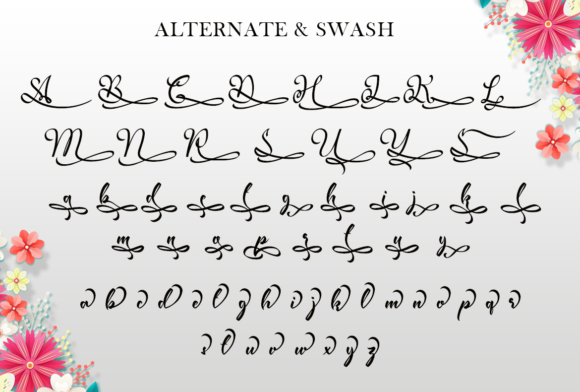 ALTERNATE & SWASH
A B C D H I K L
M N R S U Y
a b d e g h i j k l
m n o p r u y
a b c d e f g h i j k l m n o p q r
s t u v w x y z